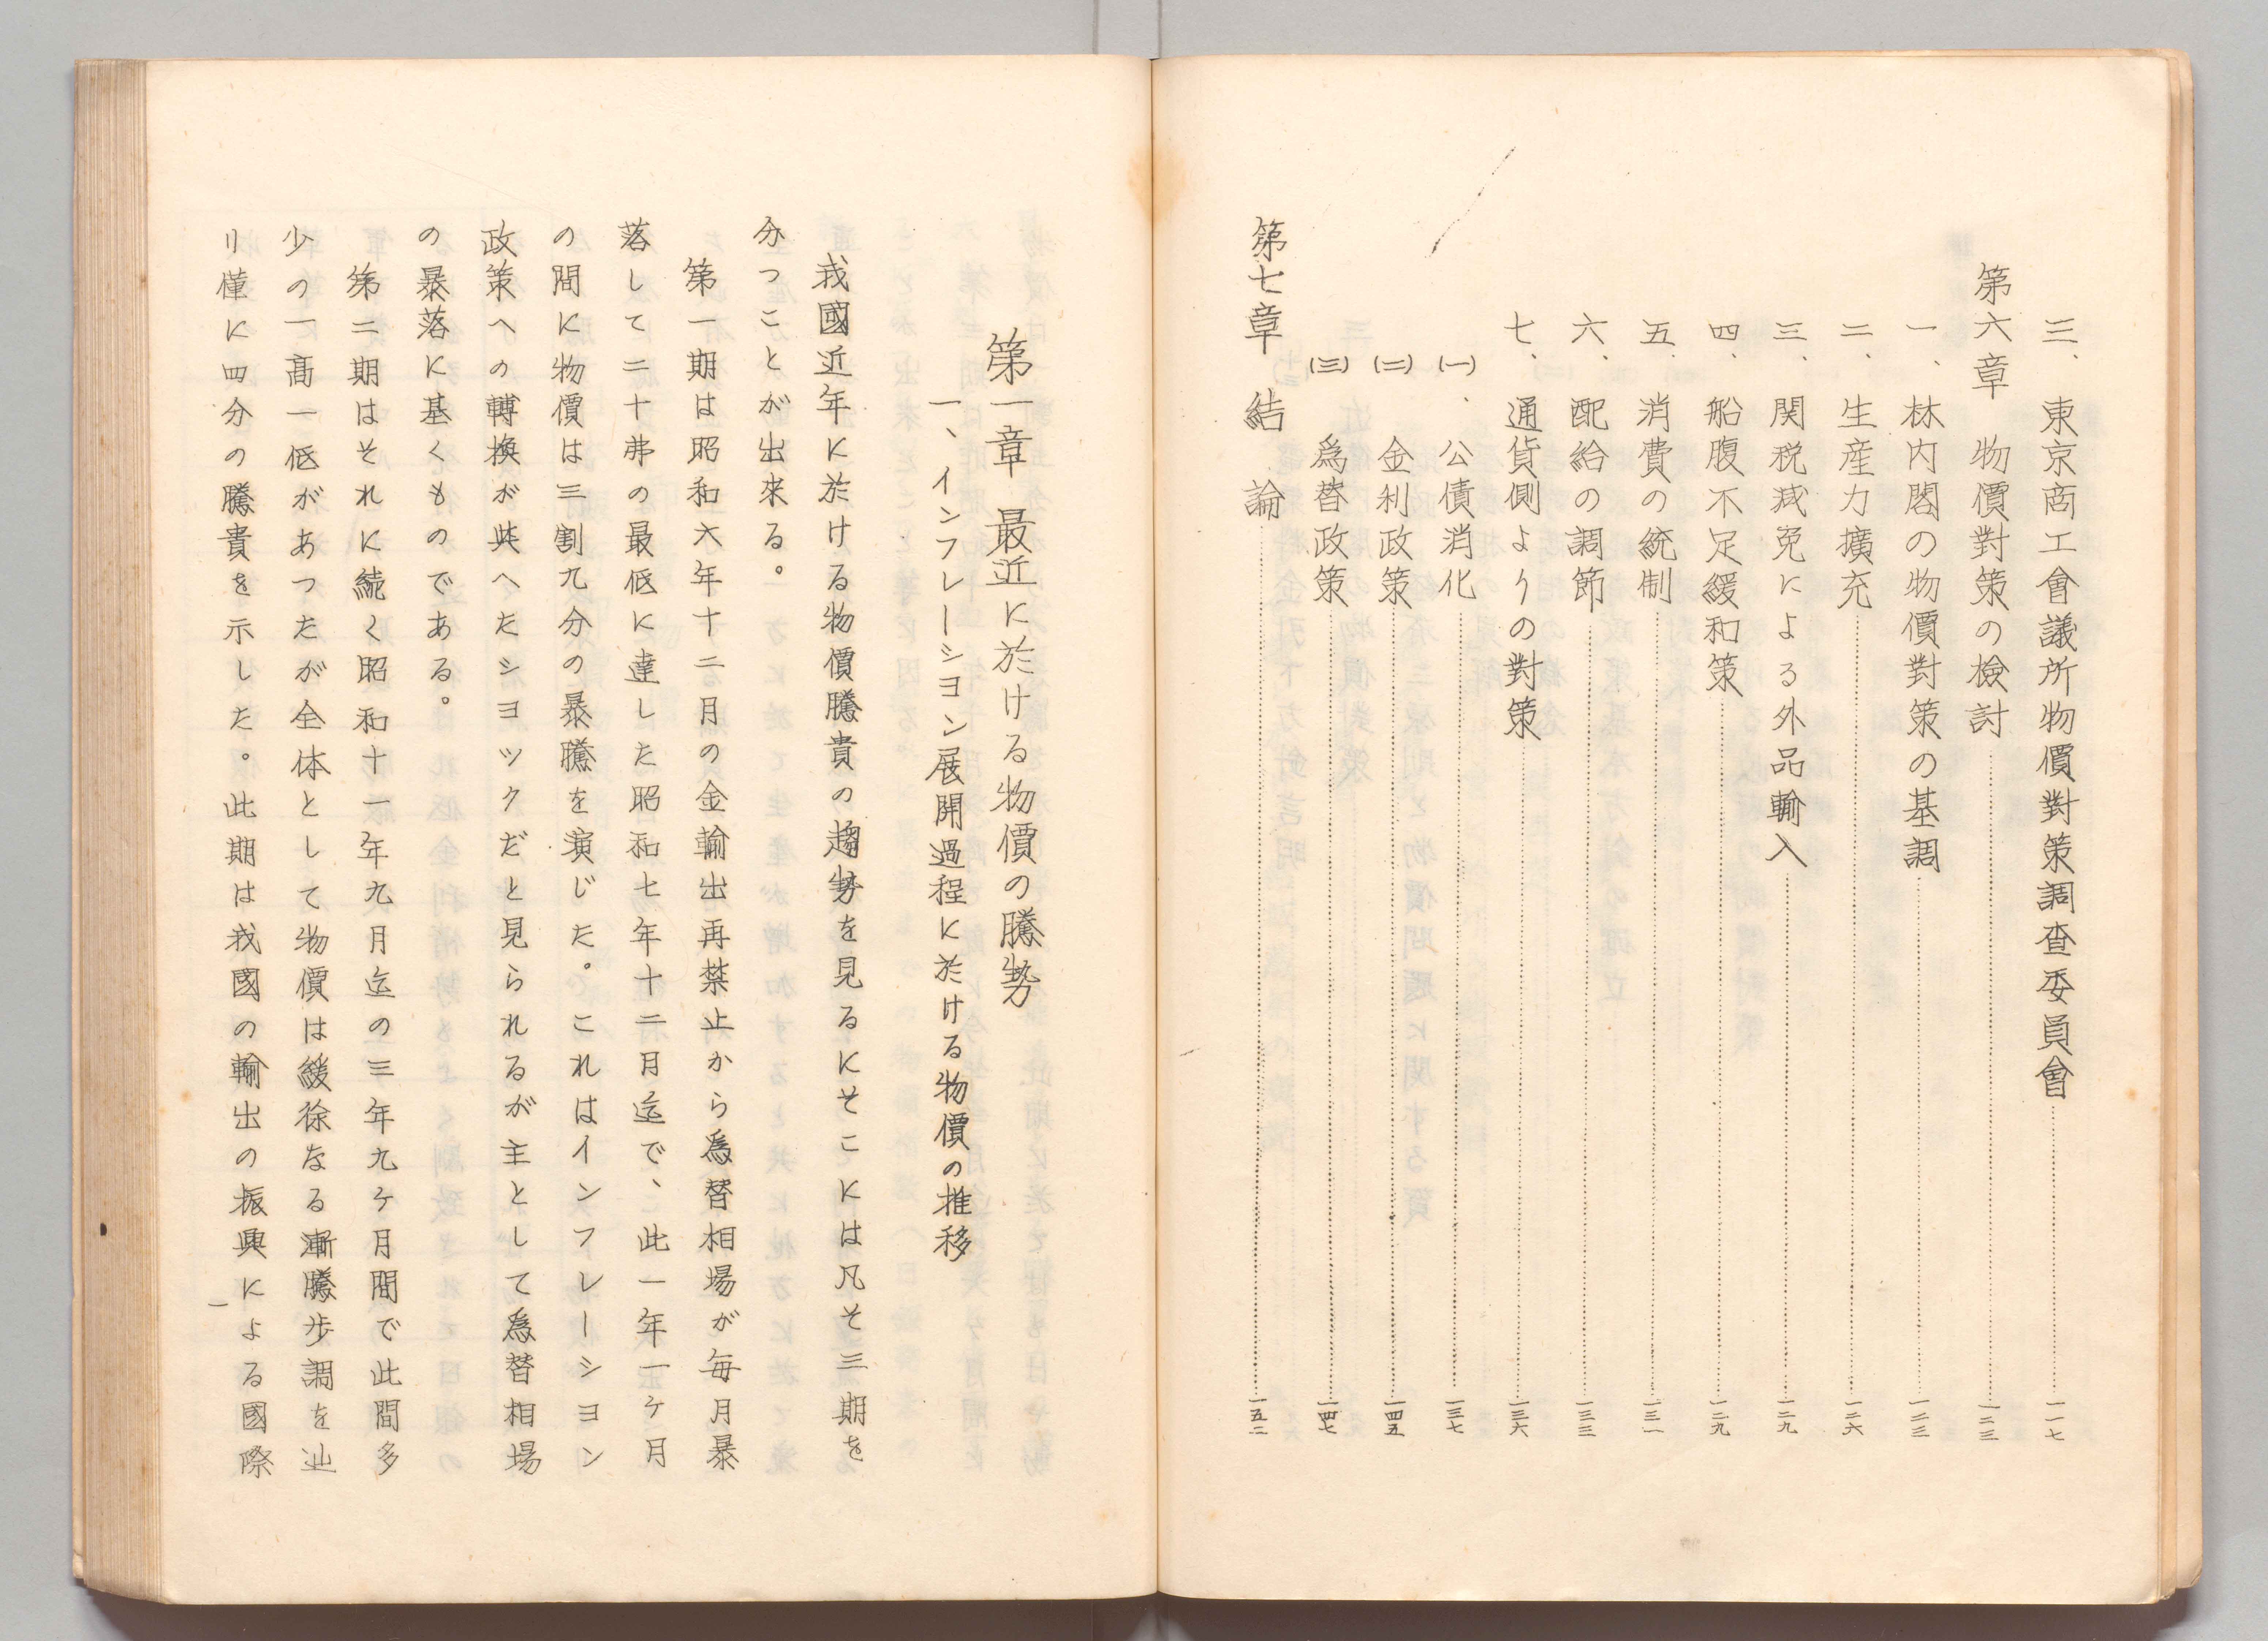 三、東京商工會議所物價對策調査委員會……一一七
第六章　物價對策の檢討……一二三
一、林内閣の物價對策の基調……一二三
二、生産力擴充……一二六
三、関税減免による外品輸入……一二九
四、船腹不足緩和策……一二九
五、消費の統制……一三一
六、配給の調節……一三三
七、通貨側よりの對策……一三六
(一)、公債消化……一三七
(二)　金利政策……一四五
(三)　爲替政策……一四七
第七章　結　論……一五二
第一章　最近に於ける物價の騰勢
一、インフレーシヨン展開過程に於ける物價の推移
我國近年に於ける物價騰貴の趨勢を見るにそこには凡そ三期を
分つことが出來る。
第一期は昭和六年十二月の金輸出再禁止から爲替相場が毎月暴
落して二十弗の最低に達した昭和七年十二月迄で、此一年一ケ月
の間に物價は三割九分の暴騰を演じた。これはインフレーシヨン
政策への轉換が與へたシヨツクだと見られるが主として爲替相場
の暴落に基くものである。
第二期はそれに続く昭和十一年九月迄の三年九ケ月間で此間多
少の一高一低があつたが全体として物價は緩徐なる漸騰歩調を辿
り僅に四分の騰貴を示した。此期は我國の輸出の振興による國際
一